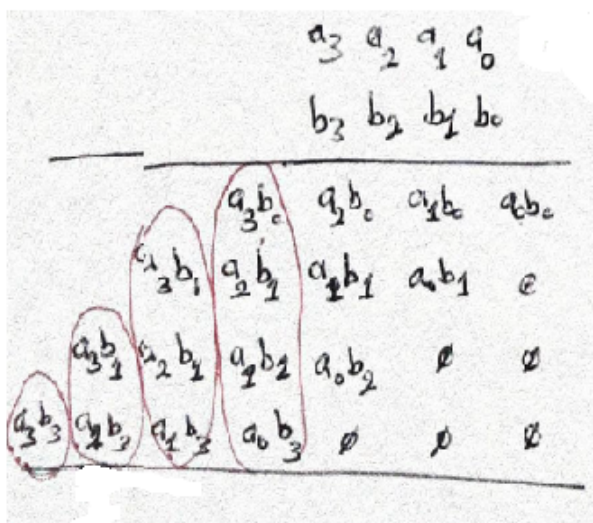 a₃ a₂ a₁ a₀
b₃ b₂ b₁ b₀
a₃b₀ a₂b₀ a₁b₀ a₀b₀
a₃b₁ a₂b₁ a₁b₁ a₀b₁
a₃b₁ a₂b₂ a₁b₂ a₀b₂ ø ø
a₃b₃ a₂b₃ a₁b₃ a₀b₃ ø ø ø